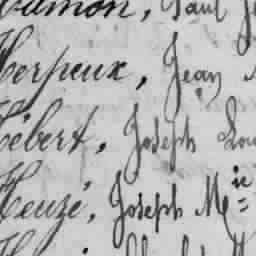 Hamon, Paul
Herpeux, Jean
Hébert, Joseph Lou
Heuzé, Joseph M ie